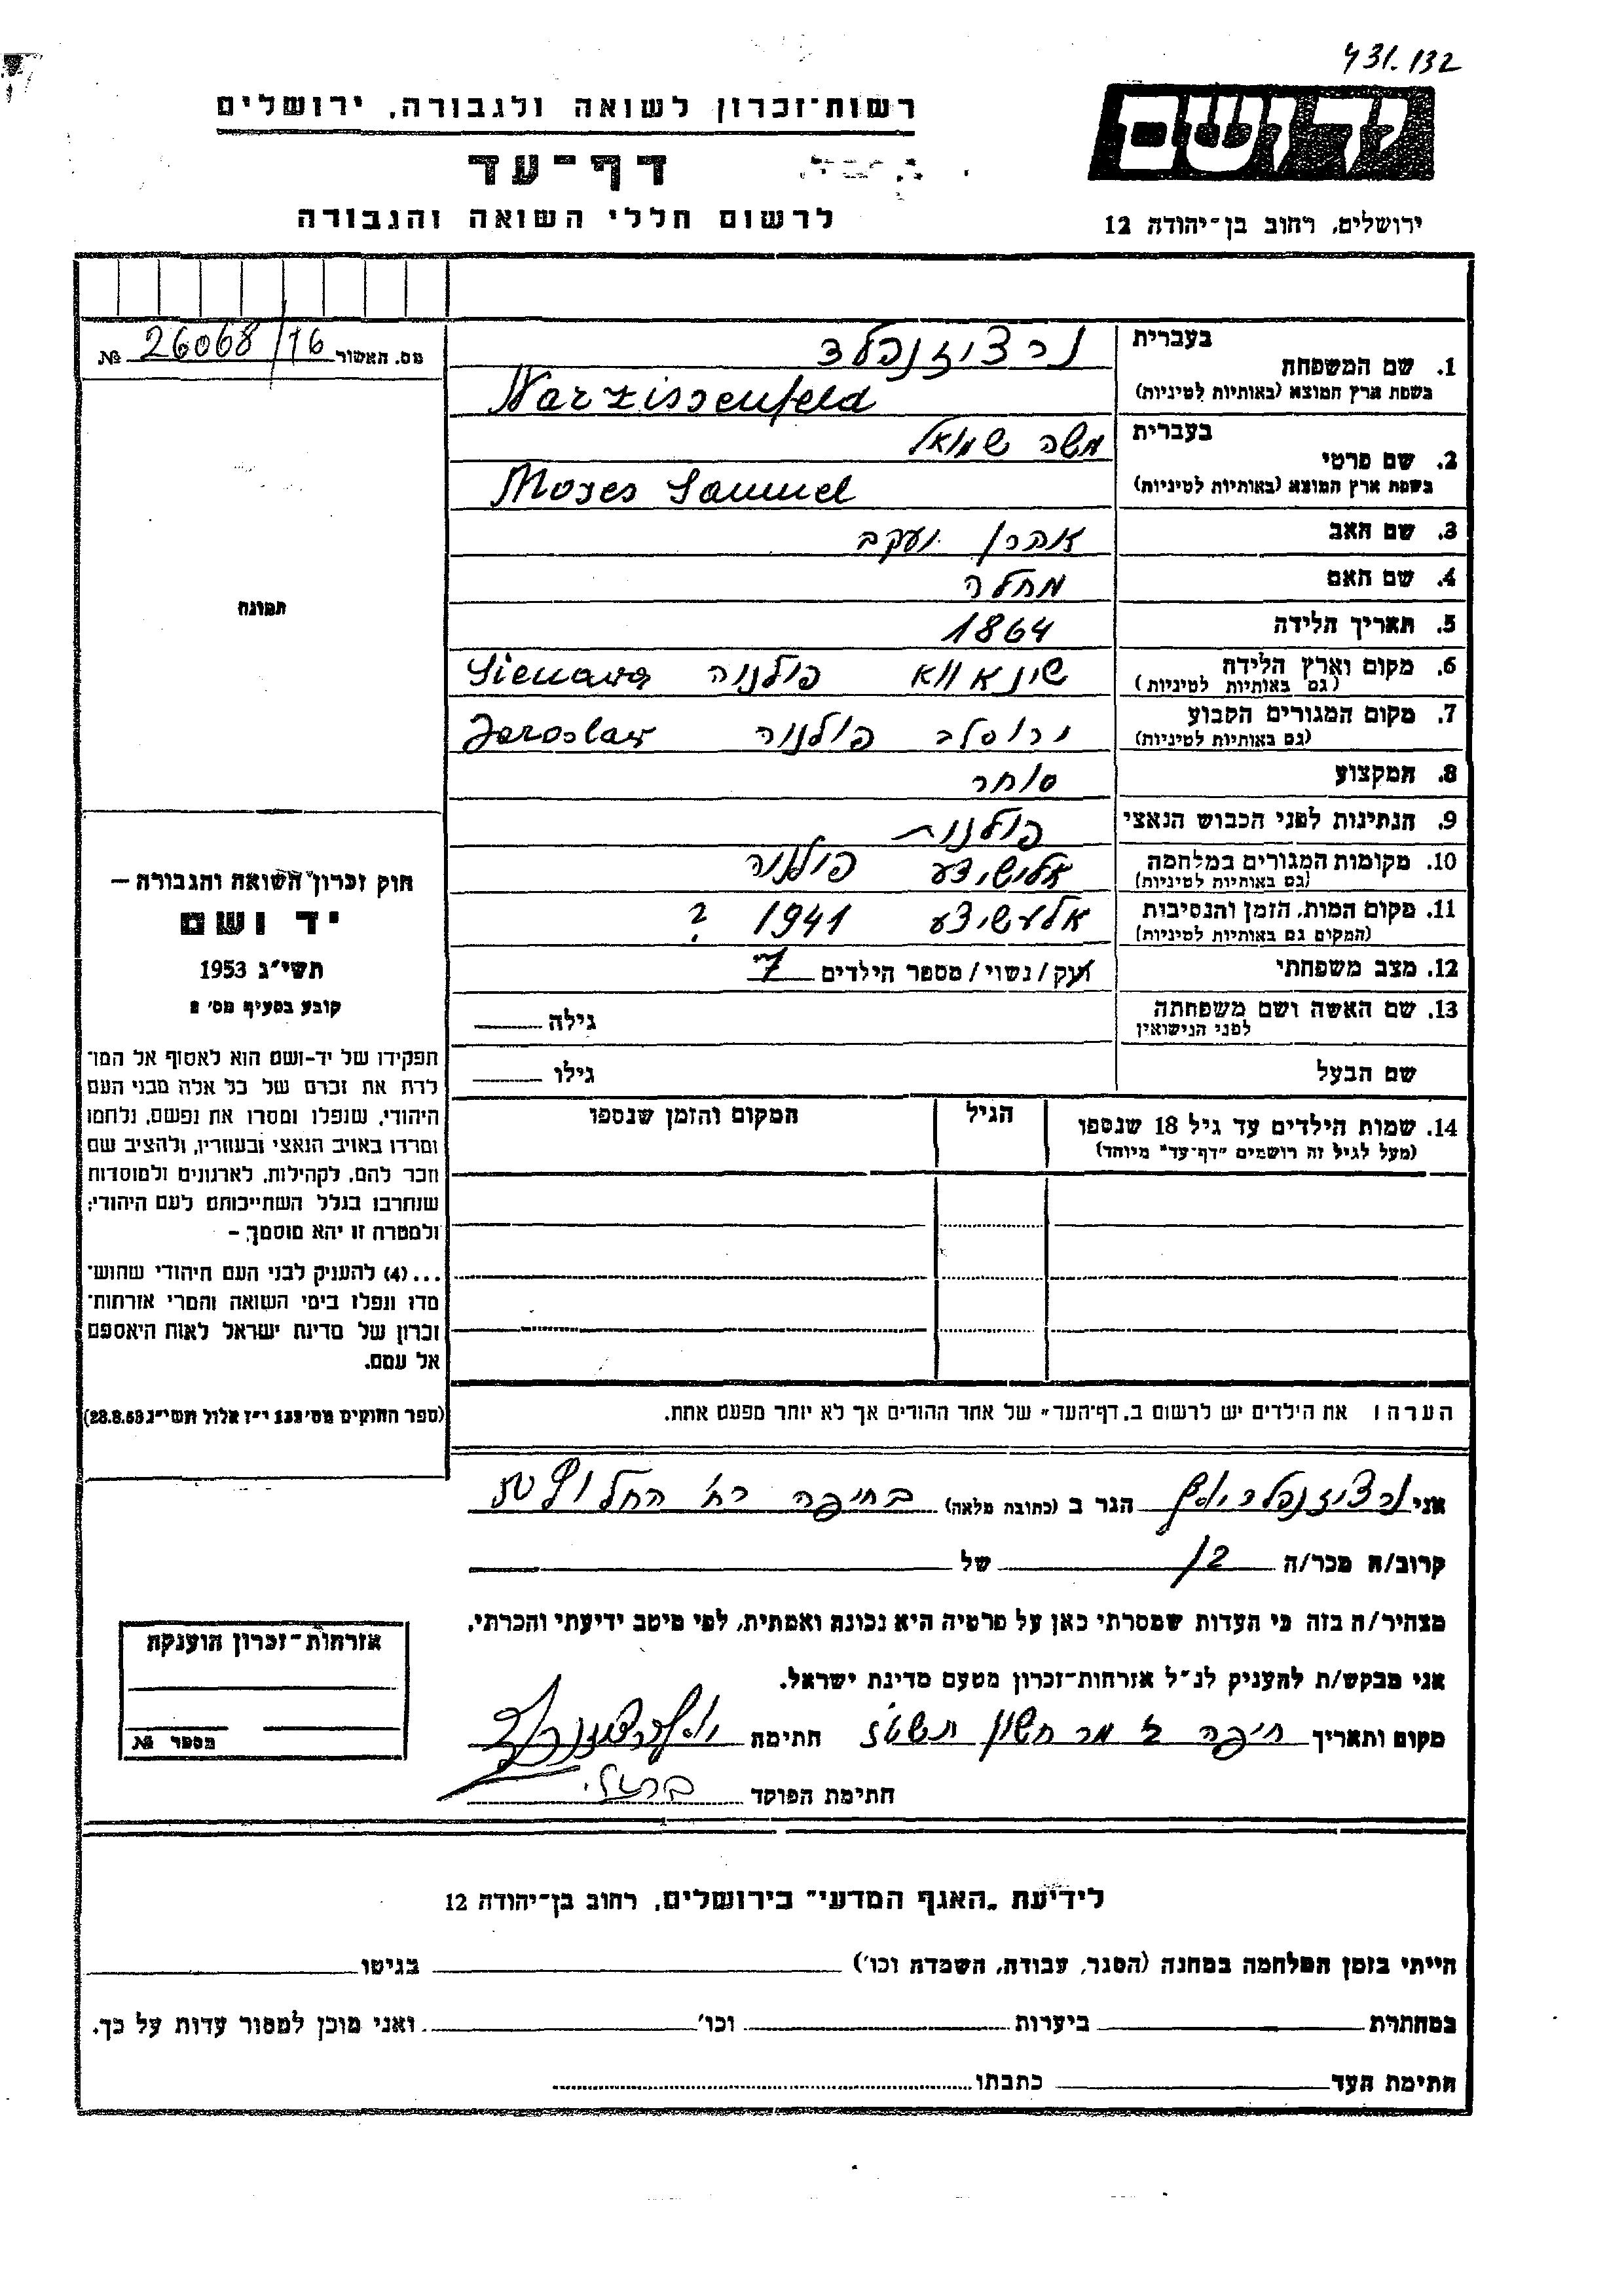 431.132
יד ושם
רשות־זכרון לשואה ולגבורה, ירושלים
דף־עד
לרשום חללי השואה והגבורה
ירושלים, רחוב בן־יהודה 12
מס. האשור 26068/76 №
1. שם המשפחה
בעברית נרציזנפלד
בשפת ארץ המוצא (באותיות לטיניות) Narzissenfeld
2. שם פרטי
בעברית משה שמואל
בשפת ארץ המוצא (באותיות לטיניות) Moses Samuel
3. שם האב אהרן יעקב
4. שם האם מחלה
5. תאריך הלידה 1864
6. מקום וארץ הלידה שינאווא פולניה Sienawa
(גם באותיות לטיניות)
7. מקום המגורים הקבוע ירוסלב פולניה Jaroslaw
(גם באותיות לטיניות)
8. המקצוע סוחר
9. הנתינות לפני הכבוש הנאצי פולנית
10. מקומות המגורים במלחמה פולניה
(גם באותיות לטיניות)
11. מקום המות, הזמן והנסיבות 1941 ?
(המקום גם באותיות לטיניות)
12. מצב משפחתי רוק/נשוי/ מספר הילדים 7
13. שם האשה ושם משפחתה
לפני הנישואין
גילה
שם הבעל גילו
14. שמות הילדים עד גיל 18 שנספו
(מעל לגיל זה רושמים "דף־עד" מיוחד)
הגיל
המקום והזמן שנספו
הערה: את הילדים יש לרשום ב„דף־העד" של אחד ההורים אך לא יותר מפעם אחת.
תמונה
חוק זכרון השואה והגבורה —
יד ושם
תשי״ג 1953
קובע בסעיף מס׳ 2
תפקידו של יד-ושם הוא לאסוף אל המו־
לדת את זכרם של כל אלה מבני העם
היהודי, שנפלו ומסרו את נפשם, נלחמו
ומרדו באויב הנאצי ובעוזריו, ולהציב שם
וזכר להם, לקהילות, לארגונים ולמוסדות
שנחרבו בגלל השתייכותם לעם היהודי;
ולמטרה זו יהא מוסמך, —
...(4) להעניק לבני העם היהודי שהוש־
מדו ונפלו בימי השואה והמרי אזרחות־
זכרון של מדינת ישראל לאות היאספם
אל עמם.
(ספר החוקים מס׳ 132 י״ז אלול תשי״ג 28.8.53)
אני נרציזנפלד הגר ב (כתובת מלאה) בחיפה רח׳ החלוץ
קרוב/ה מכר/ה 12 של
מצהיר/ה בזה כי העדות שמסרתי כאן על פרטיה היא נכונה ואמתית, לפי מיטב ידיעתי והכרתי.
אני מבקש/ת להעניק לנ״ל אזרחות־זכרון מטעם מדינת ישראל.
מקום ותאריך חיפה מר חשון חתימה
חתימת הפוקד
אזרחות־זכרון הוענקה
מספר №
לידיעת „האגף המדעי" בירושלים, רחוב בן־יהודה 12
הייתי בזמן המלחמה במחנה (הסגר, עבודה, השמדה וכו׳) בגיטו
במחתרת ביערות וכו׳ ואני מוכן למסור עדות על כך.
חתימת העד כתבתו